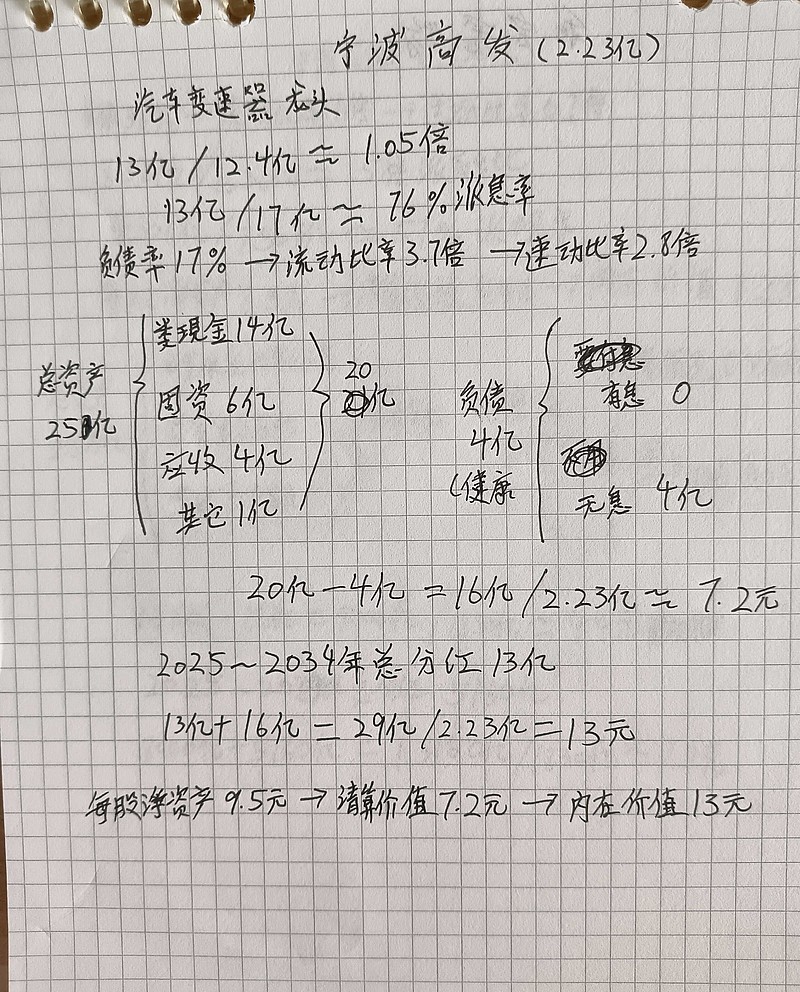 宁波高发(2.23亿)
汽车变速器 龙头
13亿/12.4亿≈1.05倍
13亿/17亿≈76%派息率
负债率17%→流动比率3.7倍→速动比率2.8倍
总资产
25亿
类现金14亿
固资6亿
应收4亿
其它1亿
20
亿
负债
4亿
(健康
有息 0
无息 4亿
20亿-4亿=16亿/2.23亿≈7.2元
2025~2034年总分红13亿
13亿+16亿=29亿/2.23亿=13元
每股净资产9.5元→清算价值7.2元→内在价值13元